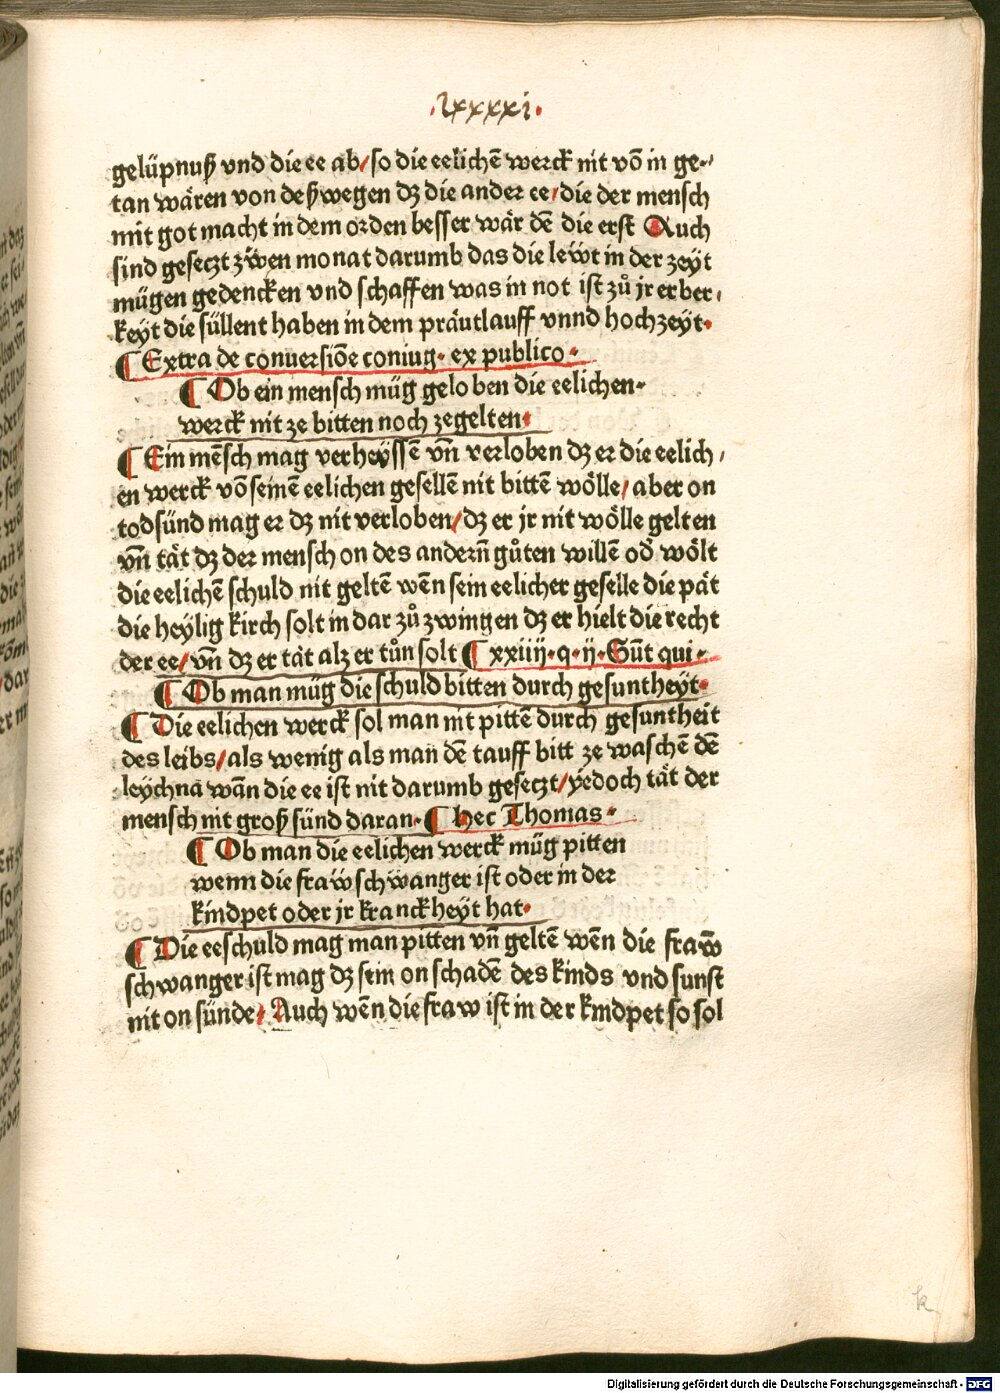 .lxxxxi.
gelüpnuß vnd die ee ab/ so die eelichē werck nit vō in ge⸗
tan wären von deßwegen dz die ander ee/ die der mensch
mit got macht in dem orden besser wär dē die erst Auch
sind geseczt zwen monat darumb das die lewt in der zeÿt
mügen gedencken vnd schaffen was in not ist zů jr erber⸗
keÿt die süllent haben in dem präutlauff vnnd hochzeÿt.
¶ Extra de conuersiōe coniug. ex publico.
¶ Ob ein mensch müg geloben die eelichen.
werck nit ze bitten noch zegelten.
¶ Ein mēsch mag verheÿssē vn̄ verloben dz er die eelich⸗
en werck vō seinē eelichen gesellē nit bittē wölle/ aber on
todsünd mag er dz nit verloben/ dz er jr nit wölle gelten
vn̄ tät dz der mensch on des andern̄ gůten willē od wölt
die eelichē schuld nit geltē wēn sein eelicher geselle die pät
die heÿlig kirch solt in dar zů zwingen dz er hielt die recht
der ee/ vn̄ dz er tät alz er tůn solt ¶ xxiiij.q.ij.Sūt qui.
¶ Ob man müg die schuld bitten durch gesuntheÿt.
¶ Die eelichen werck sol man nit pittē durch gesuntheit
des leibs/ als wenig als man dē tauff bitt ze waschē dē
leÿchna wān die ee ist nit darumb geseczt/ yedoch tät der
mensch nit groß sünd daran. ¶ hec Thomas.
¶ Ob man die eelichen werck müg pitten
wenn die fraw schwanger ist oder in der
kindpet oder jr kranckheÿt hat.
¶ Die eeschuld mag man pitten vn̄ geltē wēn die fraw
schwanger ist mag dz sein on schadē des kinds vnd sunst
nit on sünde/ Auch wēn die fraw ist in der kindpet so sol
k
Digitalisierung gefördert durch die Deutsche Forschungsgemeinschaft - DFG